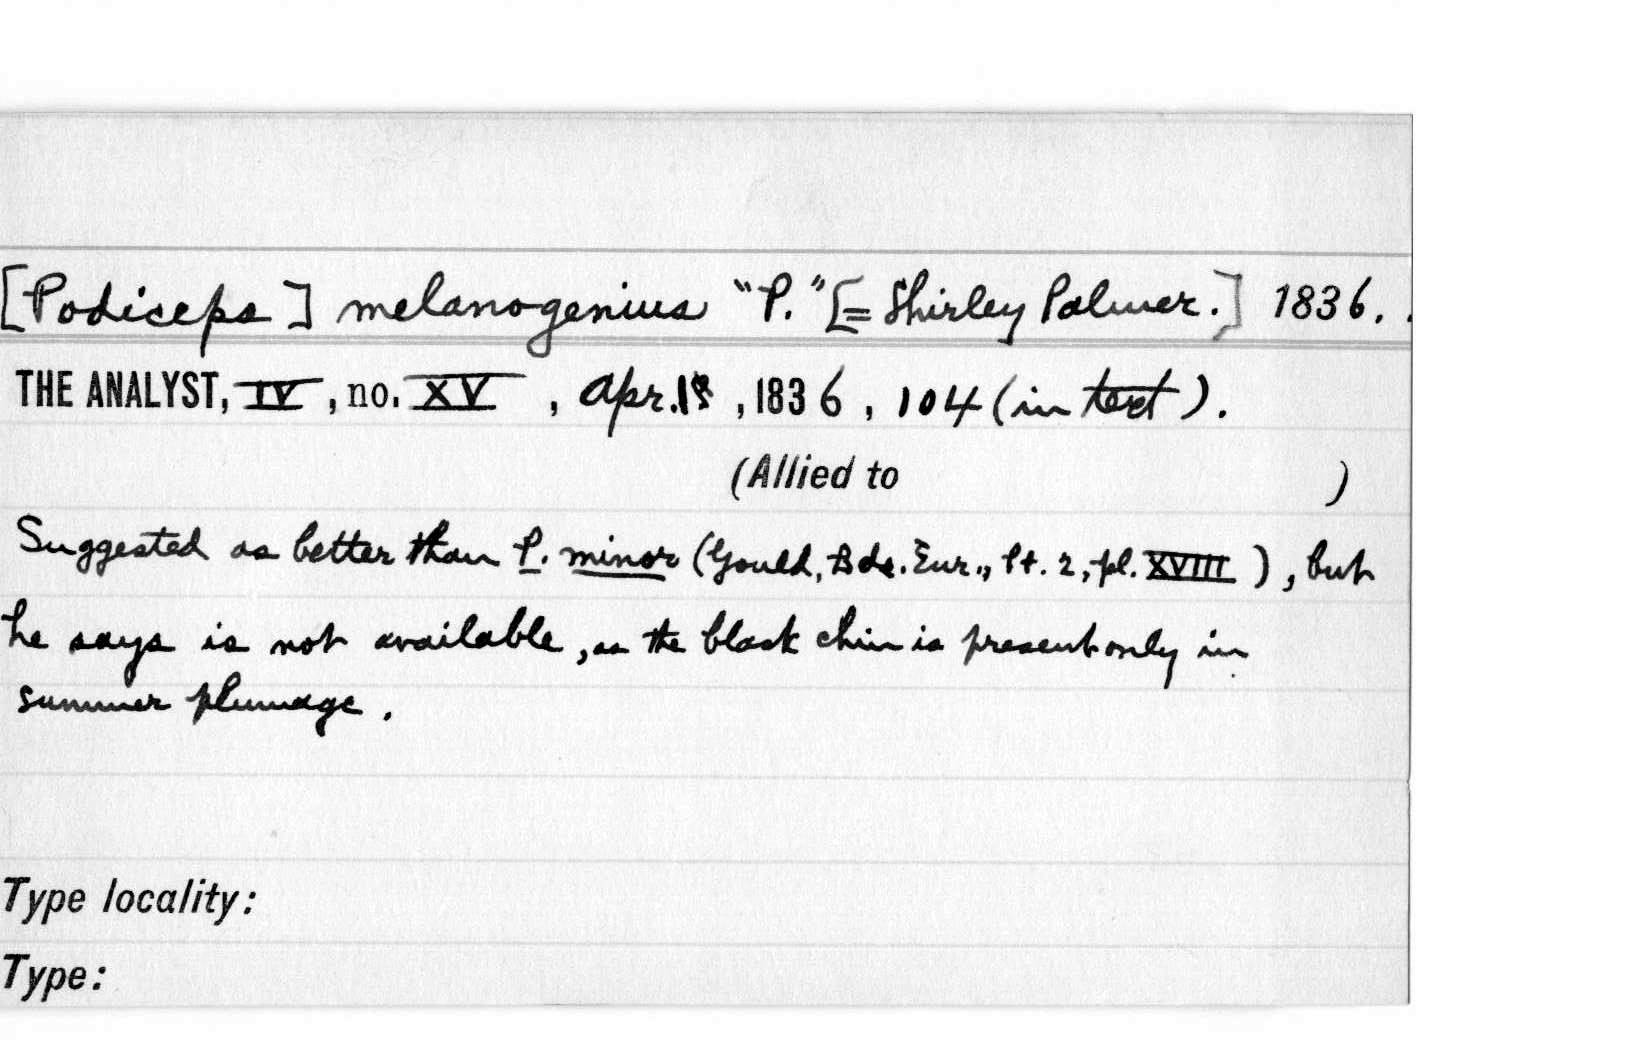 [Podiceps] melanogenius "P." [= Shirley Palmer.] 1836.
THE ANALYST, IV, no. XV, Apr. 18, 1836, 104 (in text).
(Allied to )
Suggested as better than P. minor (Gould, Bds. Eur., Pt. 2, pl. XVIII), but
he says is not available, as the black chin is present only in
summer plumage.
Type locality:
Type: